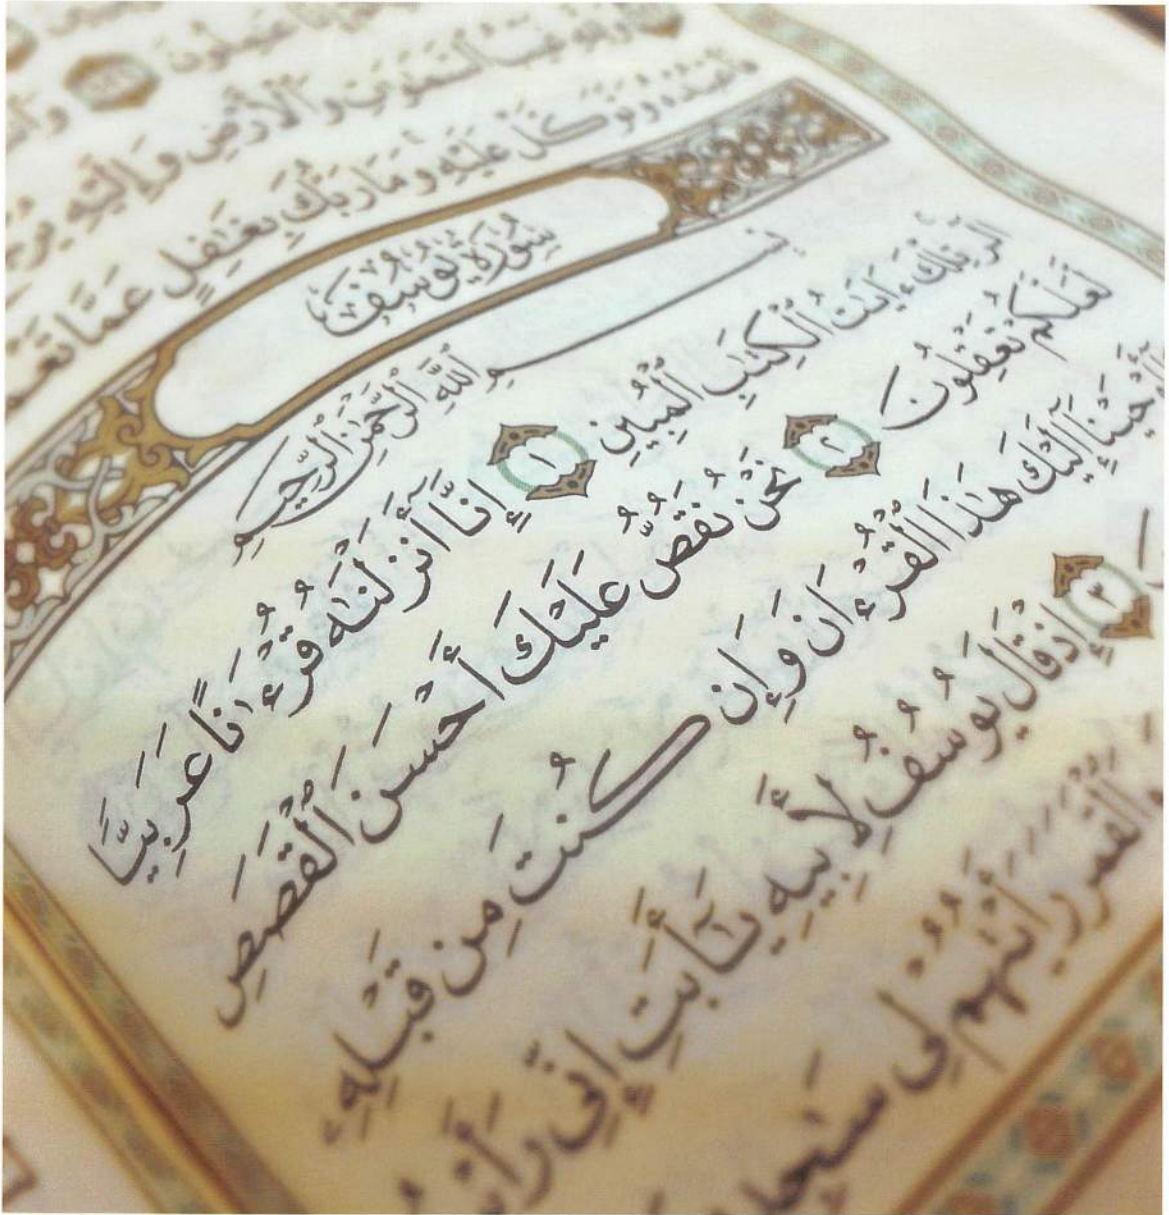 عَٰمِلُونَ
وَلِلَّهِ غَيْبُ ٱلسَّمَٰوَٰتِ وَٱلْأَرْضِ وَإِلَيْهِ
فَٱعْبُدْهُ وَتَوَكَّلْ عَلَيْهِ وَمَا رَبُّكَ بِغَٰفِلٍ عَمَّا
سُورَةُ يُوسُفَ
بِسْمِ ٱللَّهِ ٱلرَّحْمَٰنِ ٱلرَّحِيمِ
الٓر تِلْكَ ءَايَٰتُ ٱلْكِتَٰبِ ٱلْمُبِينِ ١ إِنَّآ أَنزَلْنَٰهُ قُرْءَٰنًا عَرَبِيًّا
لَّعَلَّكُمْ تَعْقِلُونَ ٢ نَحْنُ نَقُصُّ عَلَيْكَ أَحْسَنَ ٱلْقَصَصِ
أَوْحَيْنَآ إِلَيْكَ هَٰذَا ٱلْقُرْءَانَ وَإِن كُنتَ مِن قَبْلِهِۦ
٣ إِذْ قَالَ يُوسُفُ لِأَبِيهِ يَٰٓأَبَتِ إِنِّى
وَٱلْقَمَرَ رَأَيْتُهُمْ لِى